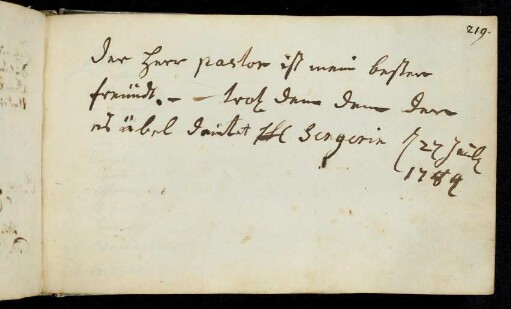 219.
der Herr pastor ist mein bester
freündt. – – trotz dem dem der
es übel deütet Zergerin 27 July
1789